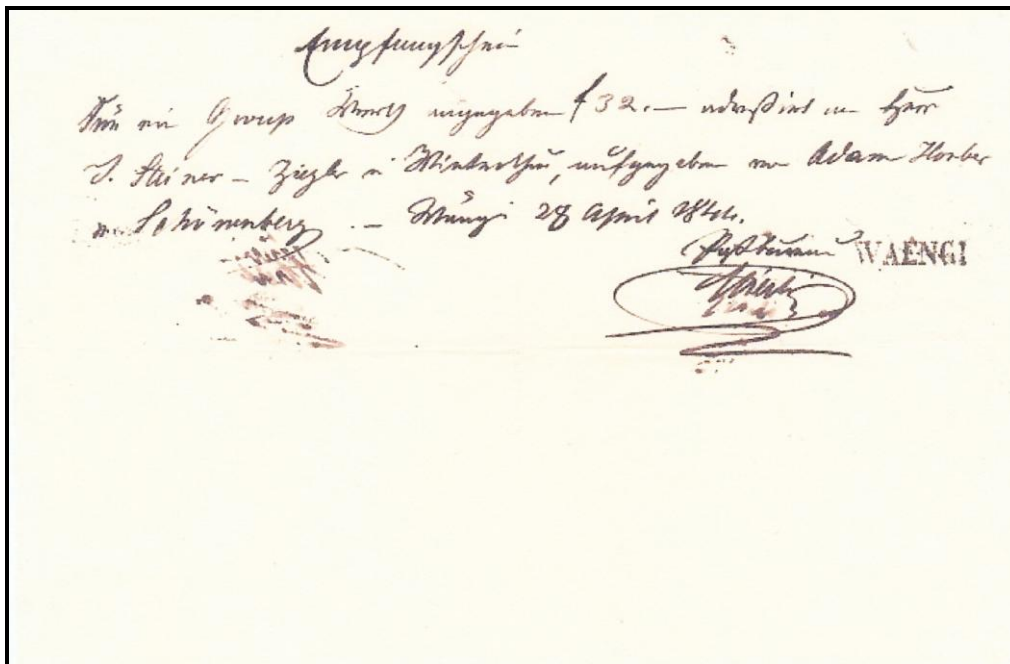 Empfangschein
Für ein Group Werth angegeben f 32.— adressirt an Herr
J. Steiner – Ziegler in Winterthur, aufgegeben von Adam Horber
von Schönenberg. — Wängi 28 April 1844.
Postbureau WAENGI